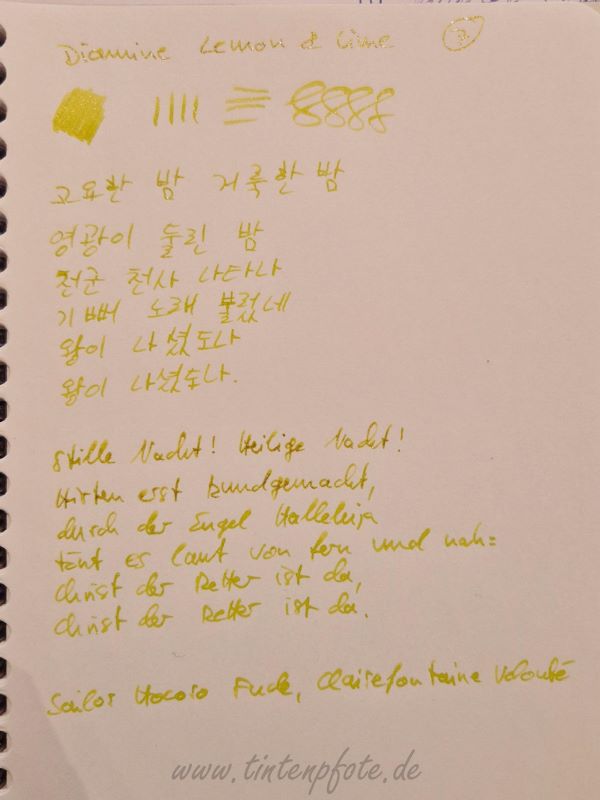 Diamine Lemon & Lime
고요한 밤 거룩한 밤
영광이 둘린 밤
천군 천사 나타나
기뻐 노래 불렀네
왕이 나셨도다
왕이 나셨도다.
Stille Nacht! Heilige Nacht!
Hirten erst kundgemacht,
durch der Engel Halleluja
tönt es laut von fern und nah:
Christ der Retter ist da,
Christ der Retter ist da.
Sailor Hocoro Fude, Clairefontaine Velouté
www.tintenpfote.de